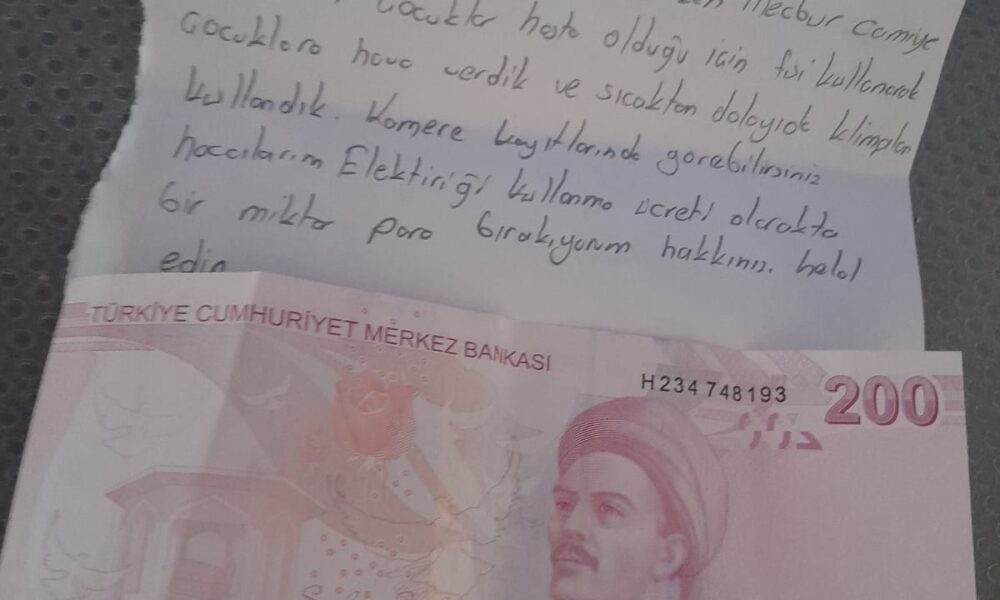 Mecbur Camiye
Çocuklar hasta olduğu için fişi kullanarak
Çocuklara hava verdik ve sıcaktan dolayıok klimaları
kullandık. Kamera kayıtlarında görebilirsiniz
haccılarım Elektiriği kullanma ücreti olarakta
bir miktar para bırakıyorum hakkınızı helal
edin
TÜRKİYE CUMHURİYET MERKEZ BANKASI
H234 748193
200